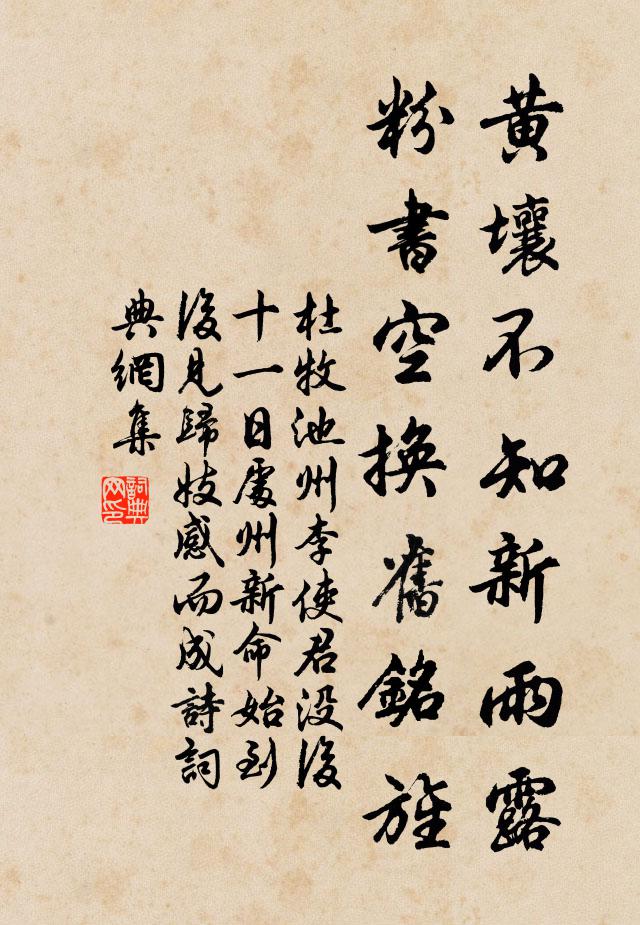 黃壤不知新雨露
粉書空換舊銘旌
杜牧池州李使君没後
十一日處州新命始到
後見歸妓感而成詩詞
典網集
詞典
网印